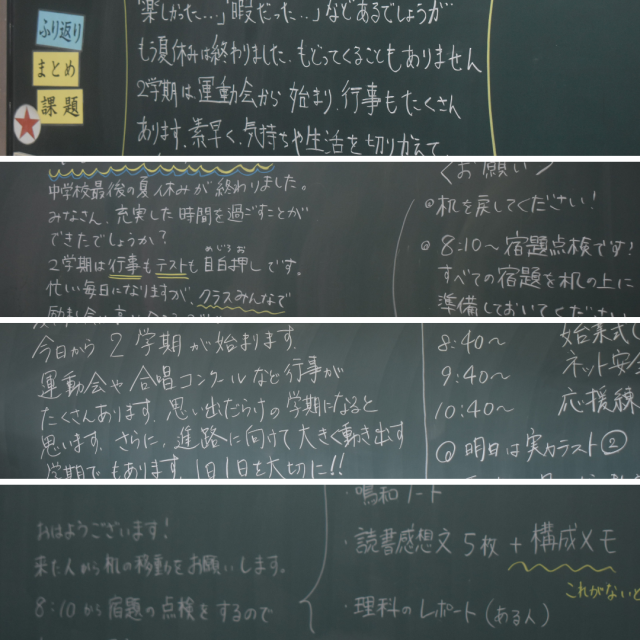 ふり返り
まとめ
課題
楽しかった…」「暇だった…」などあるでしょうが
もう夏休みは終わりました。もどってくることもありません
2学期は運動会から始まり、行事もたくさん
あります。素早く、気持ちや生活を切りかえて、
中学校最後の夏休みが終わりました。
みなさん、充実した時間を過ごすことが
できたでしょうか?
めじろお
2学期は行事もテストも目白押しです。
忙しい毎日になりますが、クラスみんなで
<お願い>
机を戻してください!
8:10~宿題点検です!
すべての宿題を机の上に
準備しておいてください
今日から2学期が始まります。
運動会や合唱コンクールなど行事が
たくさんあります。思い出だらけの学期になると
思います。さらに、進路に向けて大きく動き出す
学期でもあります。1日1日を大切に!!
8:40~ 始業式
9:40~ ネット安全
10:40~ 応援練
明日は実力テスト②
おはようございます!
来た人から机の移動をお願いします。
8:10から宿題の点検をするので
・鳴和ノート
・読書感想文5枚+構成メモ
これがないと
・理科のレポート(ある人)